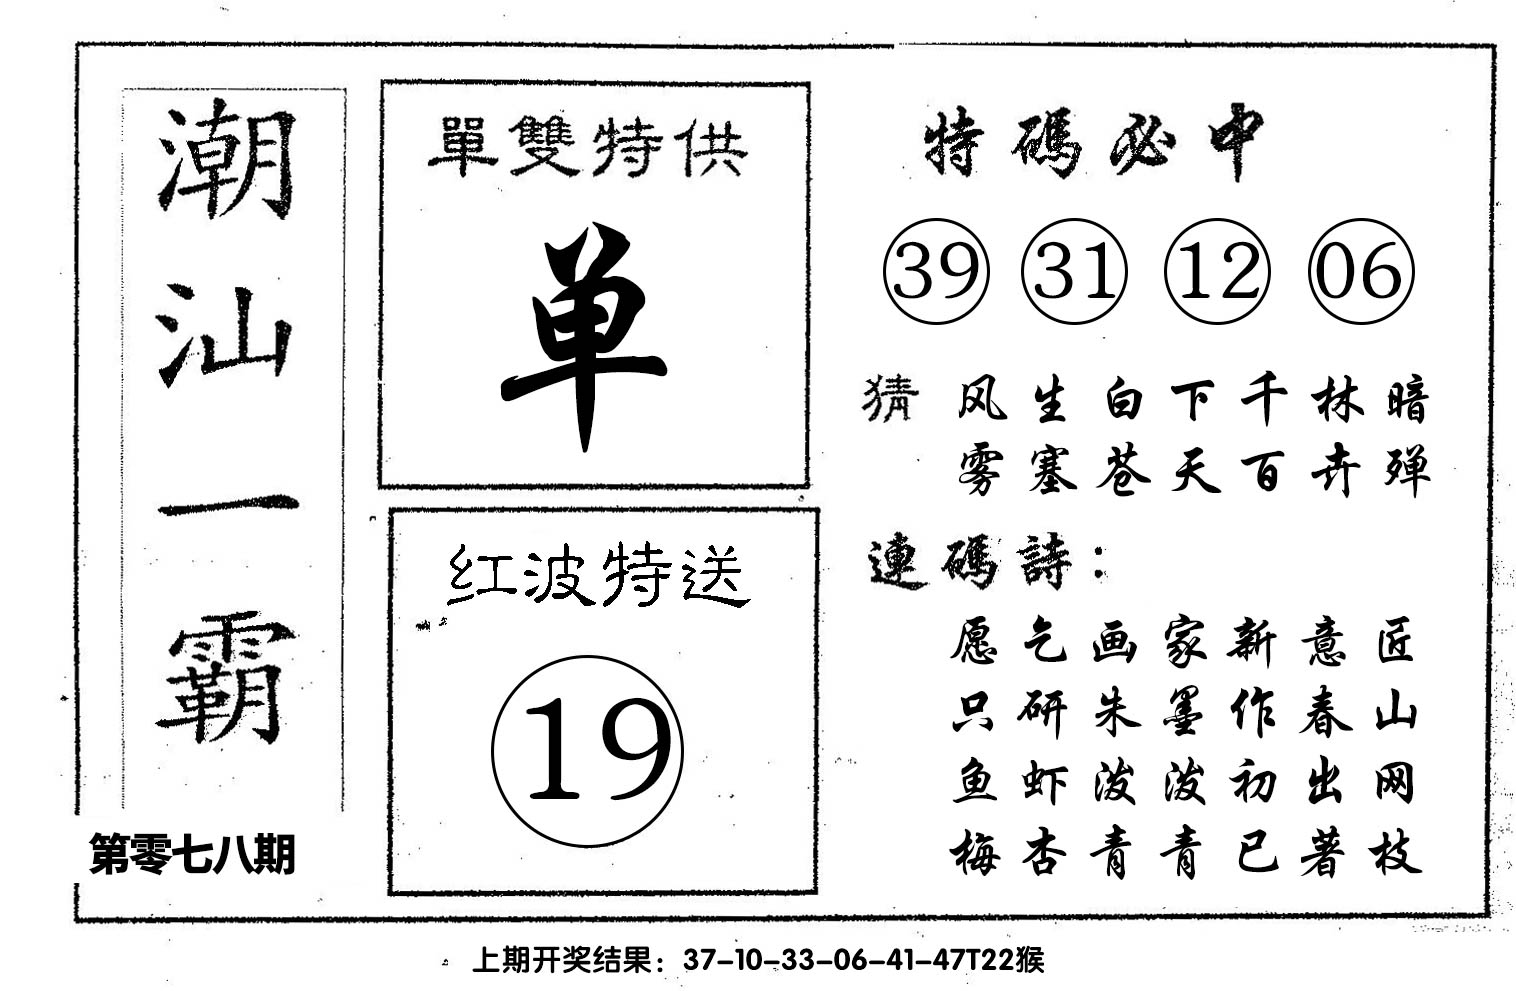 潮汕一霸
第零七八期
單雙特供
单
红波特送
19
特碼必中
39 31 12 06
猜 风生白下千林暗
雾塞苍天百卉殚
連碼詩：
愿乞画家新意匠
只研朱墨作春山
鱼虾泼泼初出网
梅杏青青已著枝
上期开奖结果：37-10-33-06-41-47T22猴